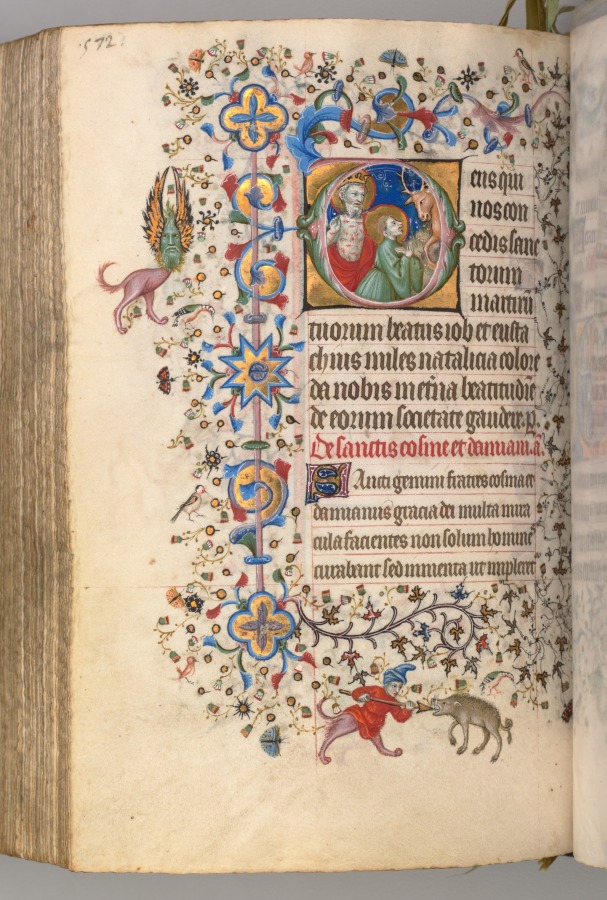 572
eus qui
nos con
cedis sanc
torum
martirū
tuorum beatus iob et eusta
chius miles natalicia colore
da nobis in et̄na beatitudīe
de eorum societate gaudere. p̄.
De sanctis cosme et damiani. ā.
Sancti gemini fratres cosma et
damianus gracia dei multa mira
cula facientes non solum homine
curabant sed immenta ut impleret